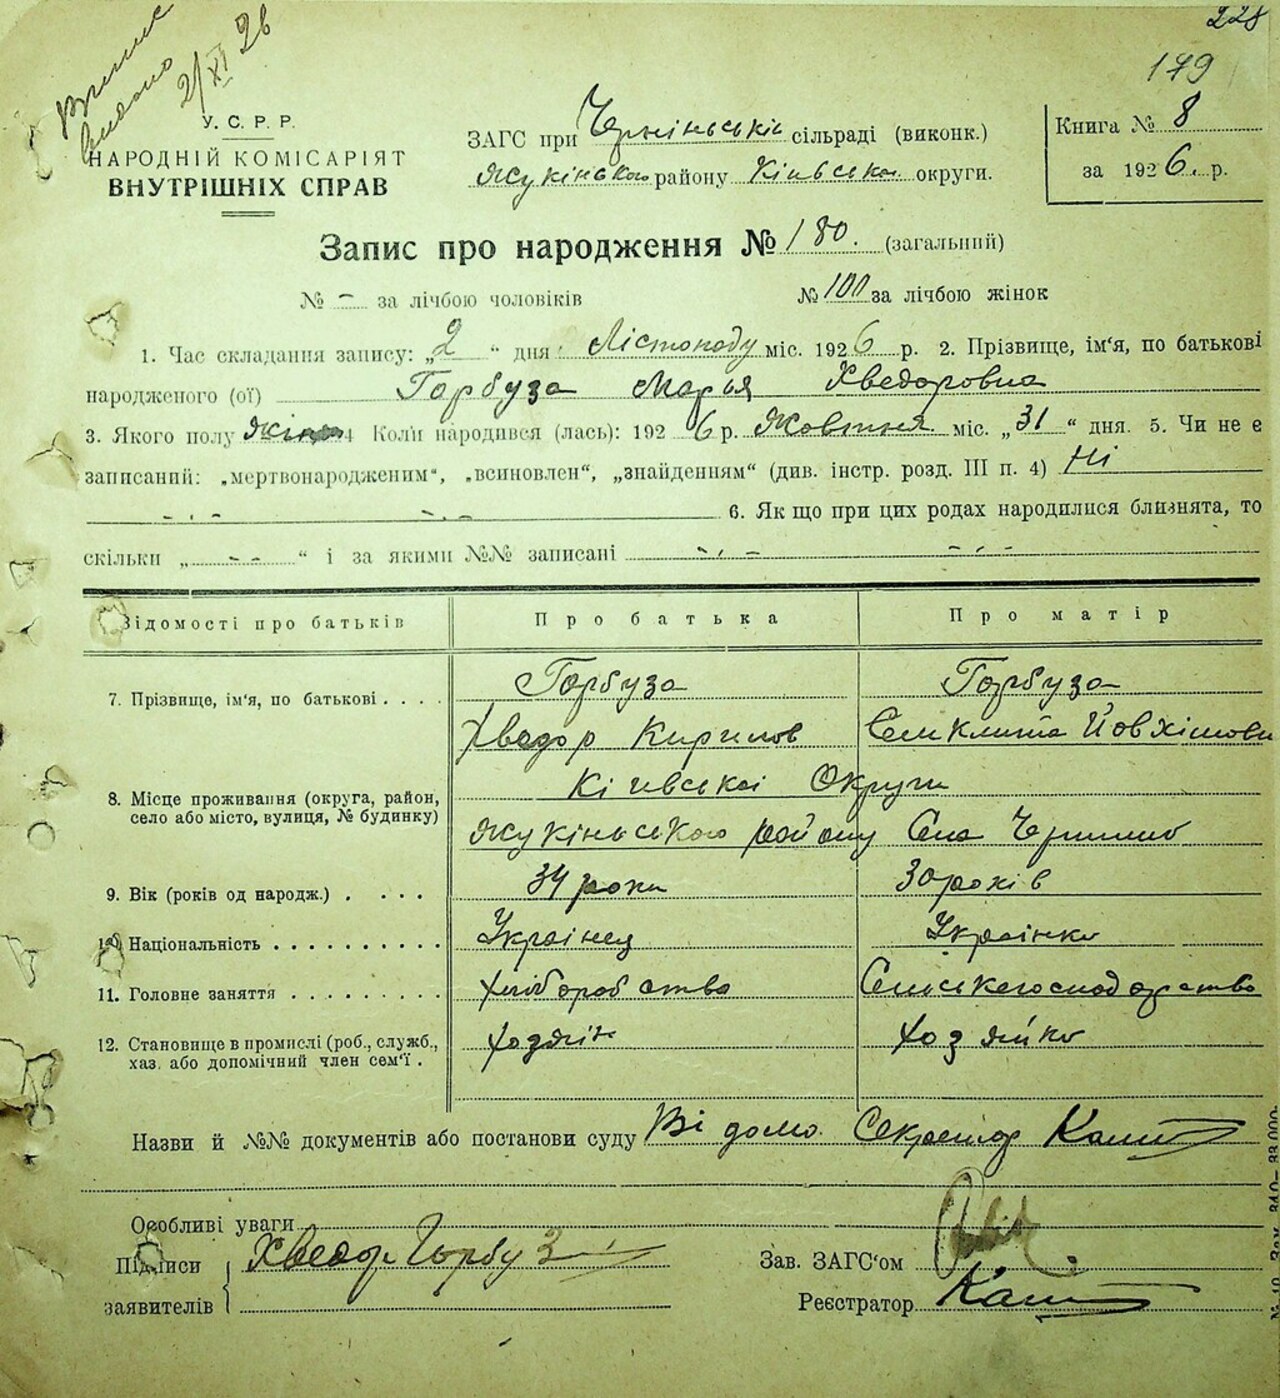 228
179
Витяг
видано
2/XI 26
У. С. Р. Р.
НАРОДНІЙ КОМІСАРІЯТ
ВНУТРІШНІХ СПРАВ
ЗАГС при Черніньські сільраді (виконк.)
Жукінського району Київської округи.
Книга № 8
за 1926 р.
Запис про народження № 180. (загальний)
№ - за лічбою чоловіків № 100 за лічбою жінок
1. Час складання запису: „2“ дня Лістопаду міс. 1926 р. 2. Прізвище, ім'я, по батькові
народженого (ої) Гарбуза Марья Хведоровна
3. Якого полу 4 Коли народився (лась): 1926 р. Жовтня міс. „31“ дня. 5. Чи не є
записаний: „мертвонародженим“, „всиновлен“, „знайденням“ (див. інстр. розд. III п. 4) Ні
6. Як що при цих родах народилися близнята, то
скільки „ - - “ і за якими №№ записані
Відомості про батьків Про батька Про матір
7. Прізвище, ім'я, по батькові . . . . Гарбуза Гарбуза
Хведор Кирилов
8. Місце проживання (округа, район, село або місто, вулиця, № будинку) Київської Округи
Жукіньського району Села Чернино
9. Вік (років од народж.) . . . . 34 роки 30 років
10. Національність . . . . . . . . . . Українец Українка
11. Головне заняття . . . . . . . . . Хліборобство Сельськегосподарство
12. Становище в промислі (роб., служб., хаз. або допомічний член сем'ї . Хозяїн Хозяйка
Назви й №№ документів або постанови суду Відомо. Секретар
Особливі уваги
Підписи Хведор Гарбуз
заявителів
Зав. ЗАГС'ом
Реєстратор